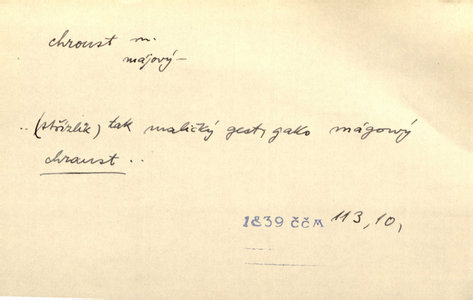 chroust m.
májový –
.. (střízlík) tak maličký gest, gako mágowý
chraust ..
1839 ČČM 113, 10,